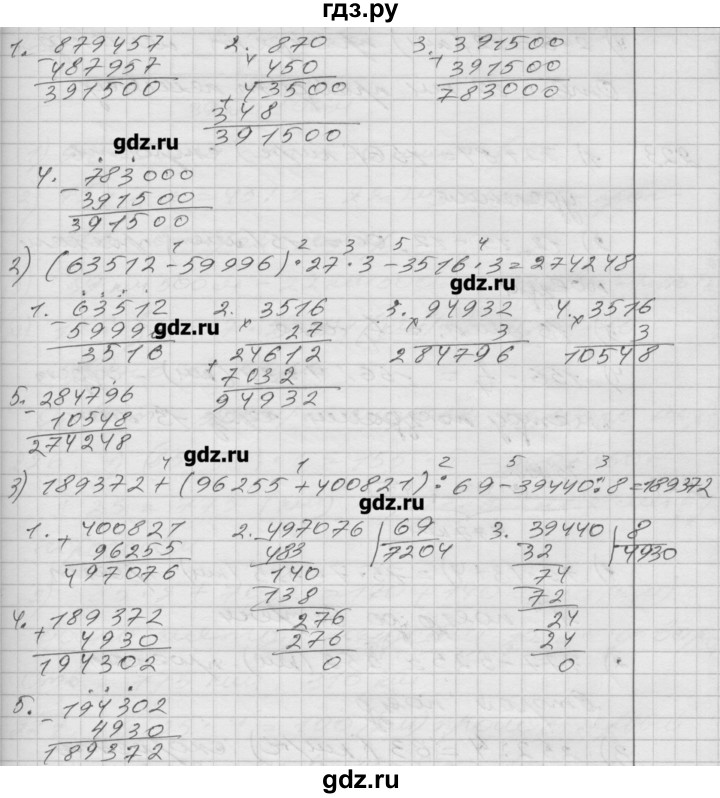 гдз.ру
1. 879457 2. 870 3. 391500
- 487957 × 450 + 391500
391500 43500 783000
+ 348
391500
gdz.ru
4. 783000
- 391500
391500
1 2 3 5 4
2) (63512 - 59996) · 27 · 3 - 3516 · 3 = 274248
gdz.ru
1. 63512 2. 3516 3. 94932 4. 3516
- 59996 × 27 × 3 × 3
3516 24612 284796 10548
gdz.ru
+ 7032
94932
5. 284796
- 10548
274248
gdz.ru
4 1 2 5 3
3) 189372 + (96255 + 400821) : 69 - 39440 : 8 = 189372
gdz.ru
1. 400821 2. 497076 69 3. 39440 8
+ 96255 483 7204 32 4930
497076 140 74
138 72
4. 189372 276 24
+ 4930 276 24
194302 0 0
5. 194302
- 4930
189372
gdz.ru
gdz.ru